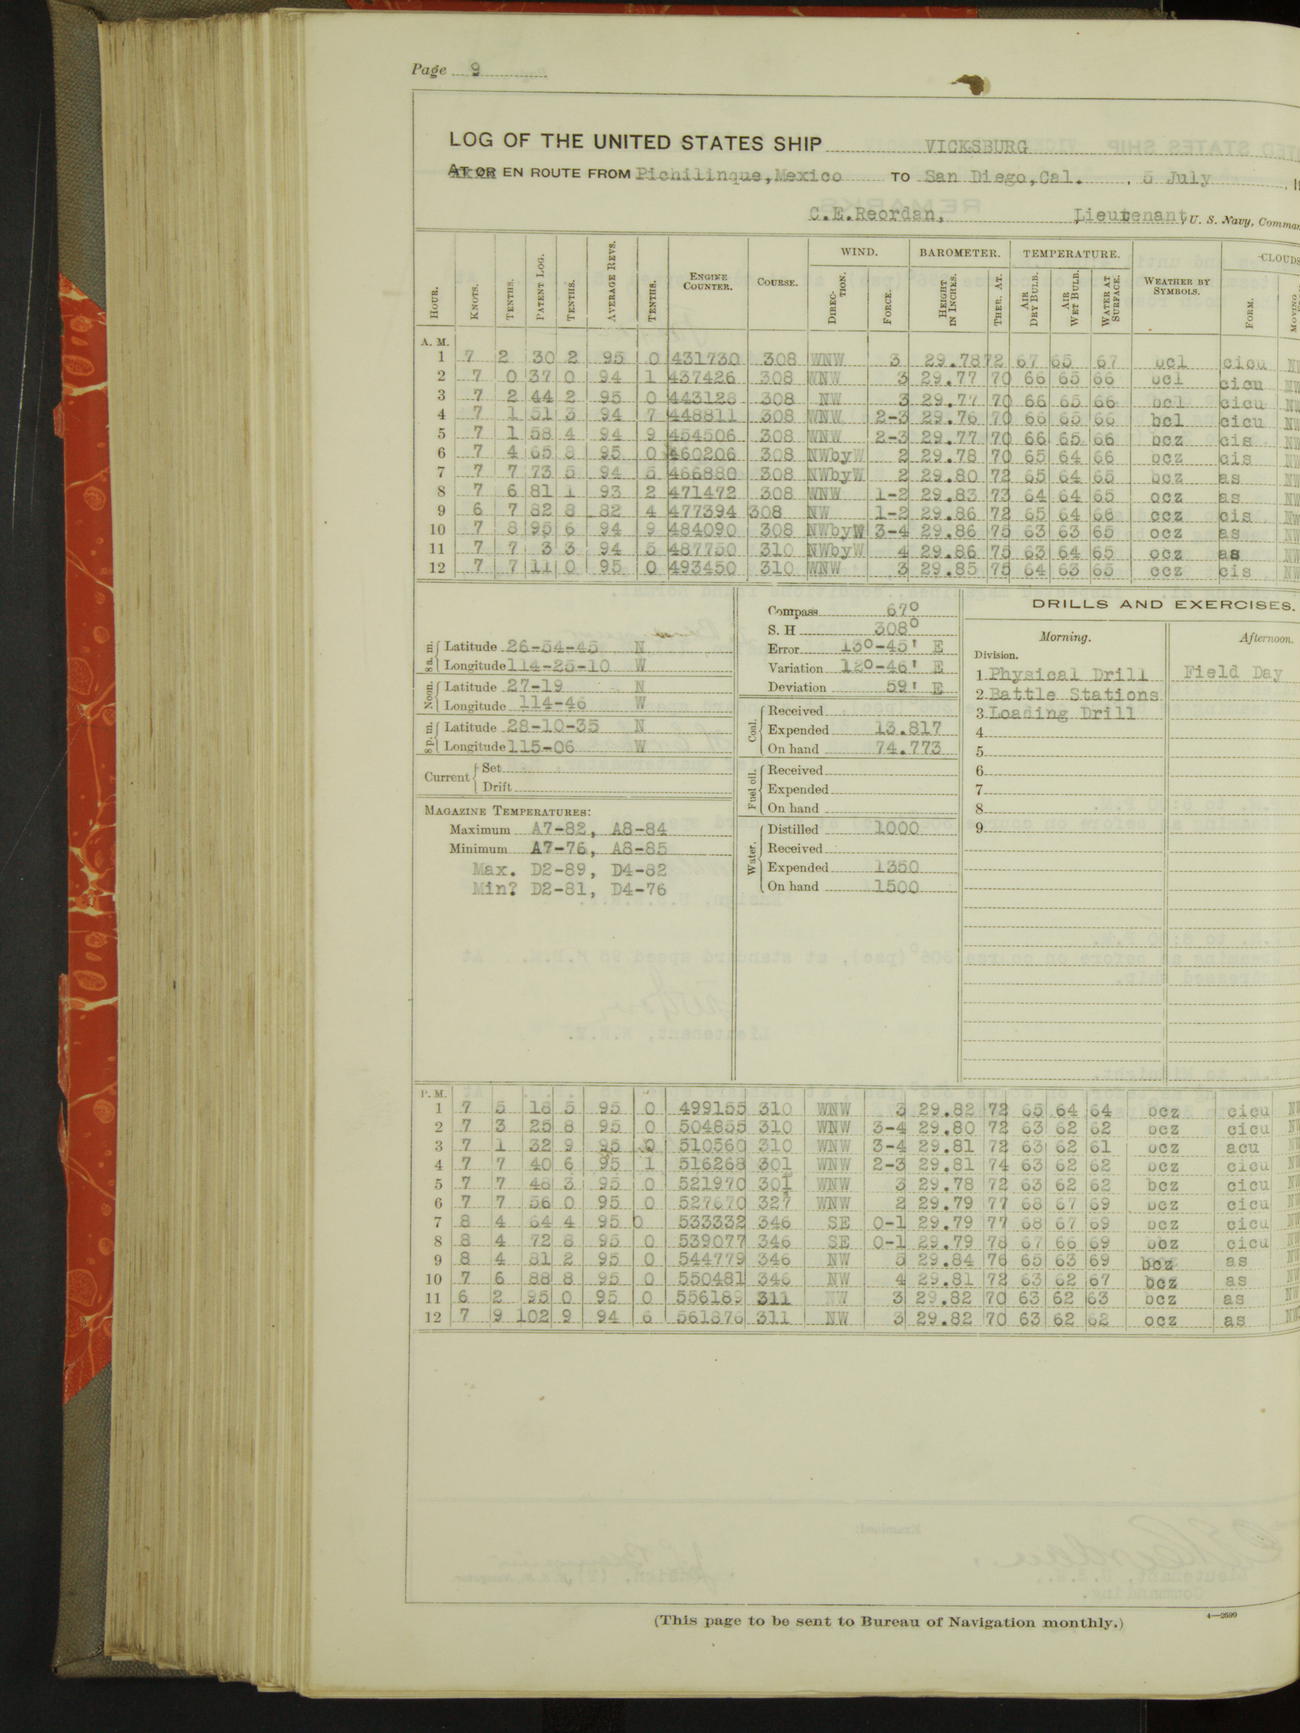 Page 9
LOG OF THE UNITED STATES SHIP VICKSBURG
AT OR EN ROUTE FROM Pichilinque,Mexico TO San Diego,Cal. , 5 July
C.E.Reordan, Lieutenant, U. S. Navy, Comman
HOUR. KNOTS. TENTHS. PATENT LOG. TENTHS. AVERAGE REVS. TENTHS. ENGINE COUNTER. COURSE. WIND. DIRECTION. FORCE. BAROMETER. HEIGHT IN INCHES. THER. AT. TEMPERATURE. AIR DRY BULB. AIR WET BULB. WATER AT SURFACE. WEATHER BY SYMBOLS. CLOUDS FORM. MOVING
A. M.
1 7 2 30 2 95 0 431730 308 WNW 3 29.78 72 67 65 67 ocl cicu
2 7 0 37 0 94 1 437426 308 WNW 3 29.77 70 66 65 66 ocl cicu
3 7 2 44 2 95 0 443128 308 NW 3 29.77 70 66 65 66 bcl cicu
4 7 1 51 3 94 7 448811 308 WNW 2-3 29.76 70 66 65 66 bcl cicu
5 7 1 58 4 94 9 454506 308 WNW 2-3 29.77 70 66 65 66 ocz cis
6 7 4 65 8 95 0 460206 308 NWbyW 2 29.78 70 65 64 66 ocz cis
7 7 7 73 5 94 5 466880 308 NWbyW 2 29.80 72 65 64 65 ocz as
8 7 6 81 1 93 2 471472 308 WNW 1-2 29.83 73 64 64 65 ocz as
9 6 7 82 8 82 4 477394 308 NW 1-2 29.86 72 65 64 66 ocz cis
10 7 8 95 6 94 9 484090 308 NWbyW 3-4 29.86 75 63 63 65 ocz as
11 7 7 3 3 94 5 487750 310 NWbyW 4 29.86 75 63 64 65 ocz as
12 7 7 11 0 95 0 493450 310 WNW 3 29.85 75 64 63 65 ocz cis
8 a. m. Latitude 26-54-45 N
Longitude 114-25-10 W
Noon. Latitude 27-19 N
Longitude 114-46 W
8 p. m. Latitude 28-10-35 N
Longitude 115-06 W
Current Set
Drift
MAGAZINE TEMPERATURES:
Maximum A7-82, A8-84
Minimum A7-76, A8-85
Max. D2-89, D4-82
Min? D2-81, D4-76
Compass 67°
S. H 308°
Error 13°-45' E
Variation 12°-46' E
Deviation 59' E
Coal. Received
Expended 13.817
On hand 74.773
Fuel oil. Received
Expended
On hand
Water. Distilled 1000
Received
Expended 1350
On hand 1500
DRILLS AND EXERCISES.
Morning. Afternoon.
Division.
1 Physical Drill Field Day
2 Battle Stations
3 Loading Drill
4
5
6
7
8
9
P. M.
1 7 5 18 5 95 0 499155 310 WNW 3 29.82 72 65 64 64 ocz cicu
2 7 3 25 8 95 0 504855 310 WNW 3-4 29.80 72 63 62 62 ocz cicu
3 7 1 32 9 95 0 510560 310 WNW 3-4 29.81 72 63 62 61 ocz acu
4 7 7 40 6 95 1 516268 301 WNW 2-3 29.81 74 63 62 62 ocz cicu
5 7 7 48 3 95 0 521970 301 WNW 3 29.78 72 63 62 62 bcz cicu
6 7 7 56 0 95 0 527670 327 WNW 2 29.79 77 68 67 69 ocz cicu
7 8 4 64 4 95 0 533332 346 SE 0-1 29.79 77 68 67 69 ocz cicu
8 8 4 72 8 95 0 539077 346 SE 0-1 29.79 78 67 66 69 ocz cicu
9 8 4 81 2 95 0 544779 346 NW 5 29.84 76 65 63 69 bcz as
10 7 6 88 8 95 0 550481 346 NW 4 29.81 72 63 62 67 bcz as
11 6 2 95 0 95 0 556189 311 NW 3 29.82 70 63 62 63 ocz as
12 7 9 102 9 94 6 561876 311 NW 3 29.82 70 63 62 62 ocz as
(This page to be sent to Bureau of Navigation monthly.)
4—2699